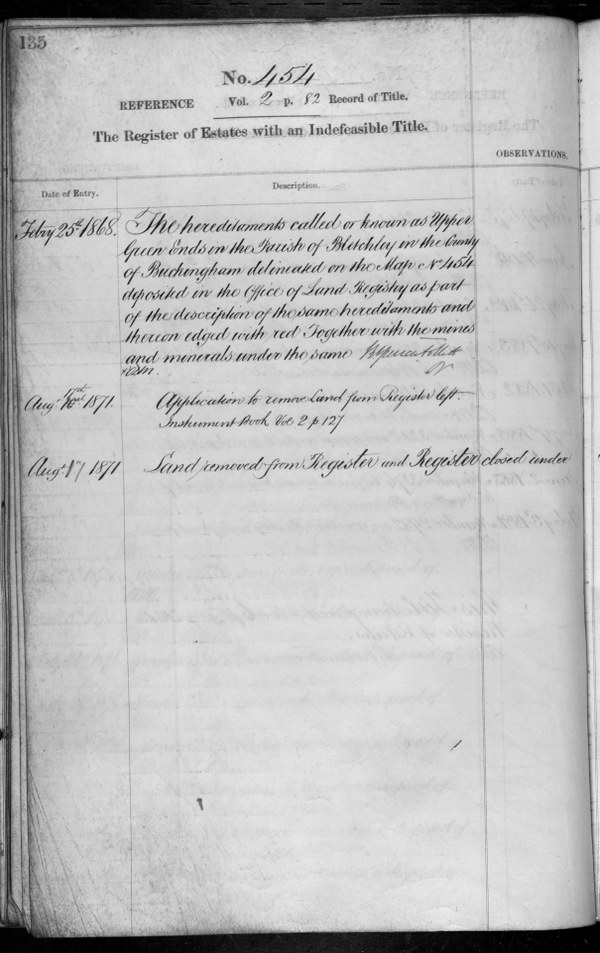 135
No. 454
REFERENCE Vol. 2 p. 82 Record of Title.
The Register of Estates with an Indefeasible Title.
OBSERVATIONS.
Date of Entry.
Description.
Febry 25th 1868. The hereditaments called or known as Upper
Green Ends in the Parish of Bletchley in the County
of Buckingham delineated on the Map No 454
deposited in the Office of Land Registry as part
of the description of the same hereditaments and
thereon edged with red Together with the mines
and minerals under the same
Augt 1871. Application to remove Land from Register left.
Instrument Book Vol 2 p 127
Augt 17 1871 Land removed from Register and Register closed under